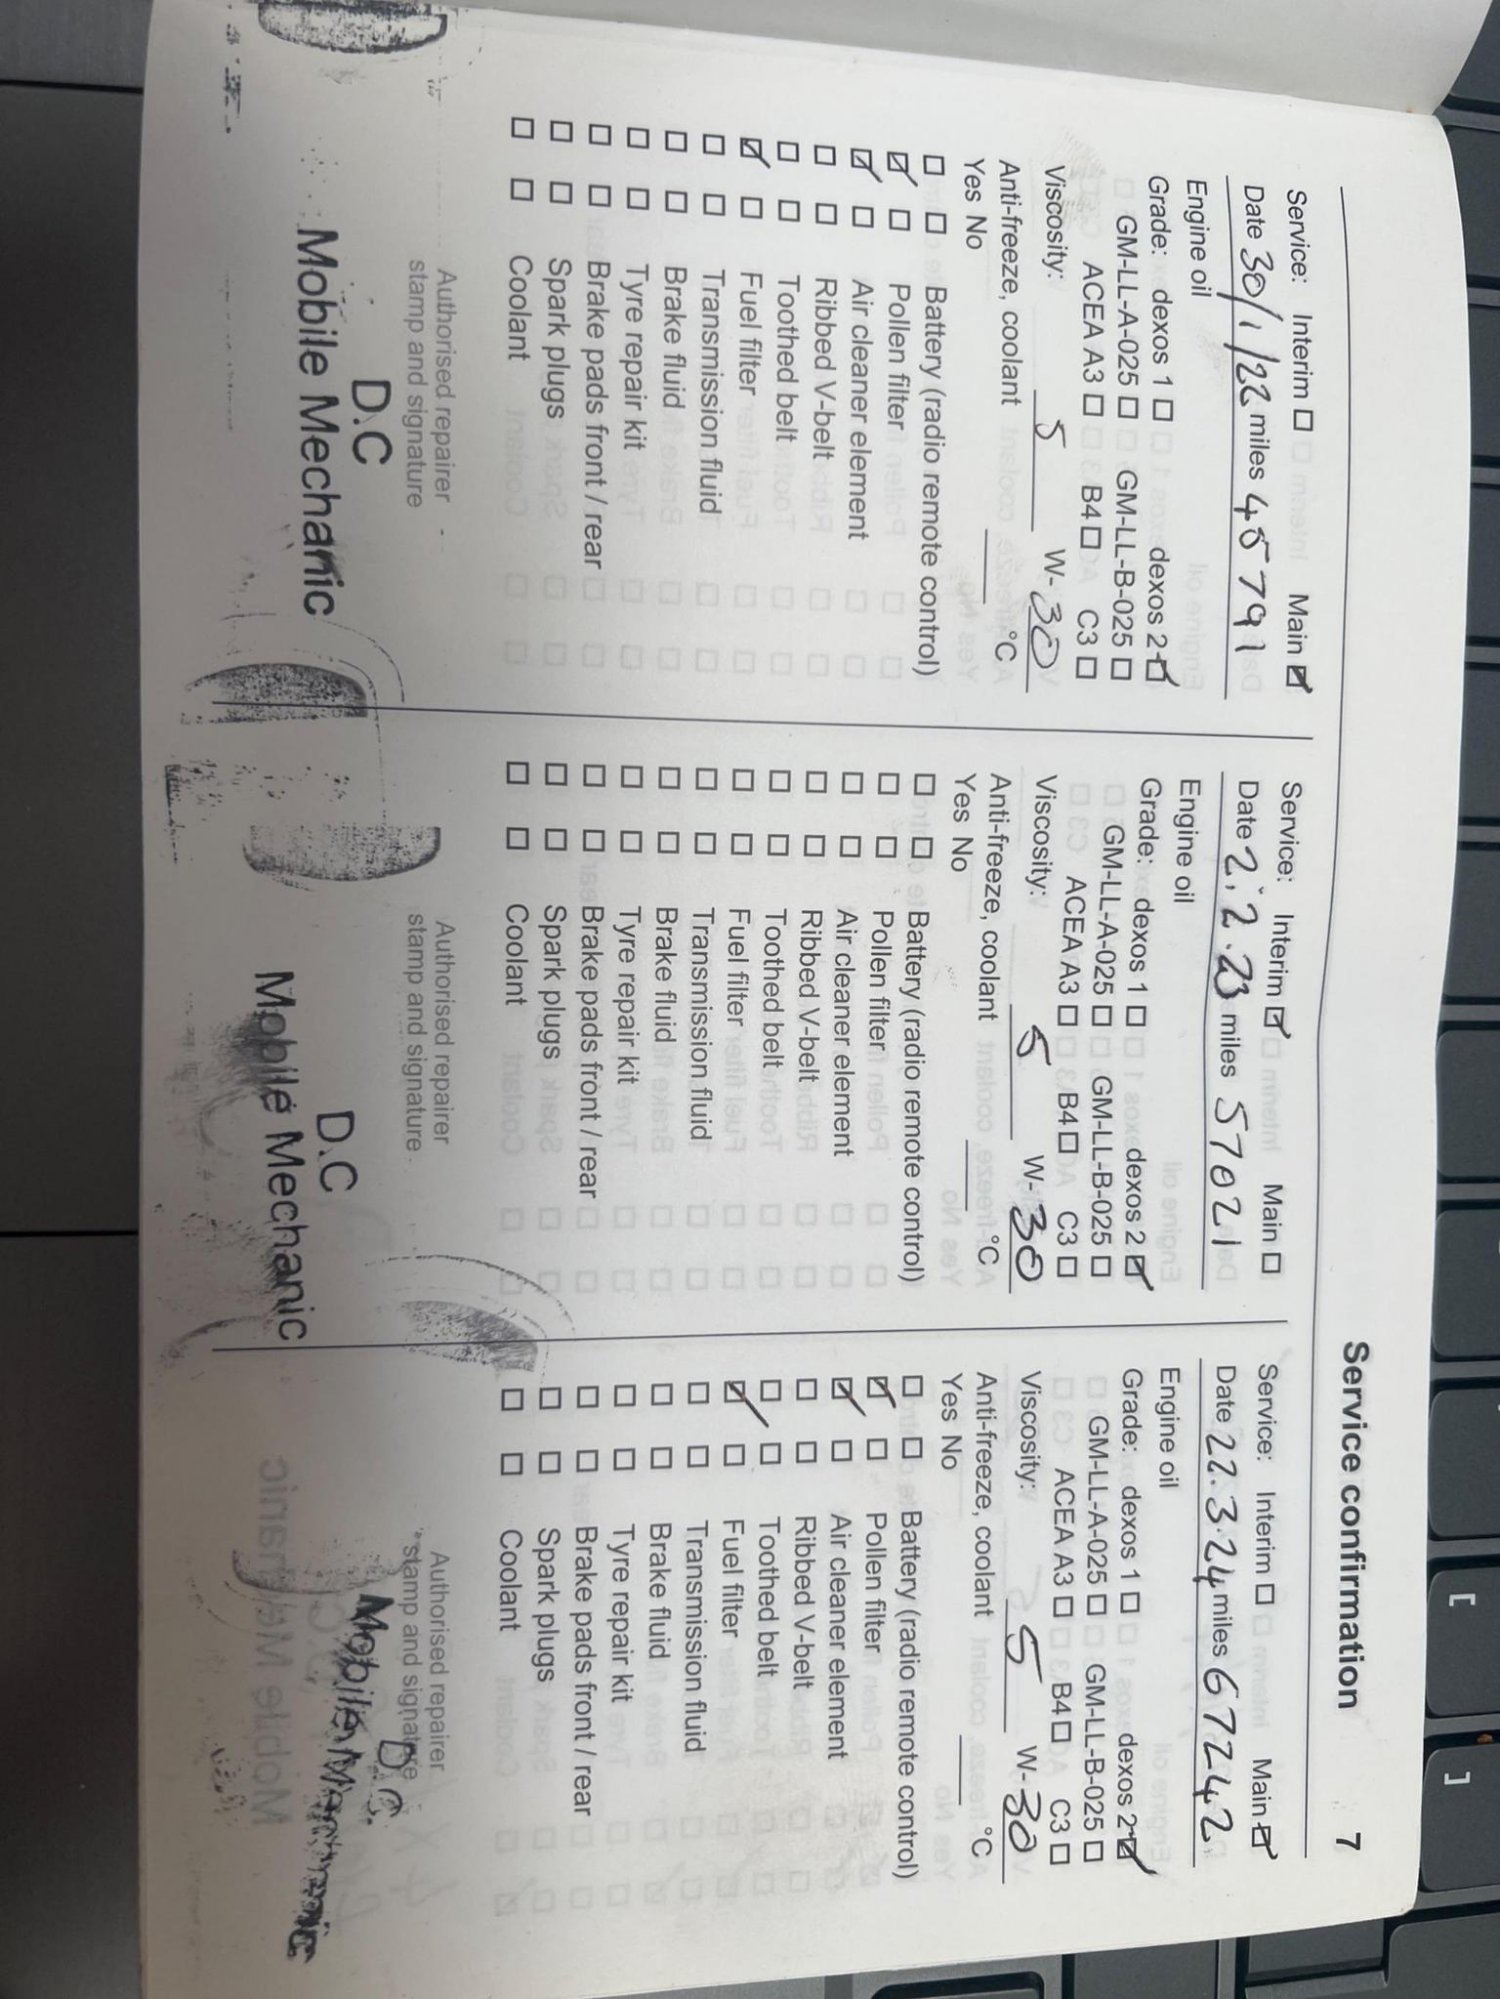 Service confirmation 7
Service: Interim ☐ Main ☑
Date 30/1/22 miles 45791
Engine oil
Grade: dexos 1 ☐ dexos 2 ☑
GM-LL-A-025 ☐ GM-LL-B-025 ☐
ACEA A3 ☐ B4 ☐ C3 ☐
Viscosity: 5 W-30
Anti-freeze, coolant °C
Yes No
☐ ☐ Battery (radio remote control)
☑ ☐ Pollen filter
☑ ☐ Air cleaner element
☐ ☐ Ribbed V-belt
☐ ☐ Toothed belt
☑ ☐ Fuel filter
☐ ☐ Transmission fluid
☐ ☐ Brake fluid
☐ ☐ Tyre repair kit
☐ ☐ Brake pads front / rear
☐ ☐ Spark plugs
☐ ☐ Coolant
Authorised repairer
stamp and signature
D.C
Mobile Mechanic
Service: Interim ☑ Main ☐
Date 2.2.23 miles 57021
Engine oil
Grade: dexos 1 ☐ dexos 2 ☑
GM-LL-A-025 ☐ GM-LL-B-025 ☐
ACEA A3 ☐ B4 ☐ C3 ☐
Viscosity: 5 W-30
Anti-freeze, coolant °C
Yes No
☐ ☐ Battery (radio remote control)
☐ ☐ Pollen filter
☐ ☐ Air cleaner element
☐ ☐ Ribbed V-belt
☐ ☐ Toothed belt
☐ ☐ Fuel filter
☐ ☐ Transmission fluid
☐ ☐ Brake fluid
☐ ☐ Tyre repair kit
☐ ☐ Brake pads front / rear
☐ ☐ Spark plugs
☐ ☐ Coolant
Authorised repairer
stamp and signature
D.C
Mobile Mechanic
Service: Interim ☐ Main ☑
Date 22.3.24 miles 67242
Engine oil
Grade: dexos 1 ☐ dexos 2 ☑
GM-LL-A-025 ☐ GM-LL-B-025 ☐
ACEA A3 ☐ B4 ☐ C3 ☐
Viscosity: 5 W-30
Anti-freeze, coolant °C
Yes No
☐ ☐ Battery (radio remote control)
☑ ☐ Pollen filter
☑ ☐ Air cleaner element
☐ ☐ Ribbed V-belt
☐ ☐ Toothed belt
☑ ☐ Fuel filter
☐ ☐ Transmission fluid
☐ ☐ Brake fluid
☐ ☐ Tyre repair kit
☐ ☐ Brake pads front / rear
☐ ☐ Spark plugs
☐ ☐ Coolant
Authorised repairer
stamp and signature
D.C
Mobile Mechanic
[
]